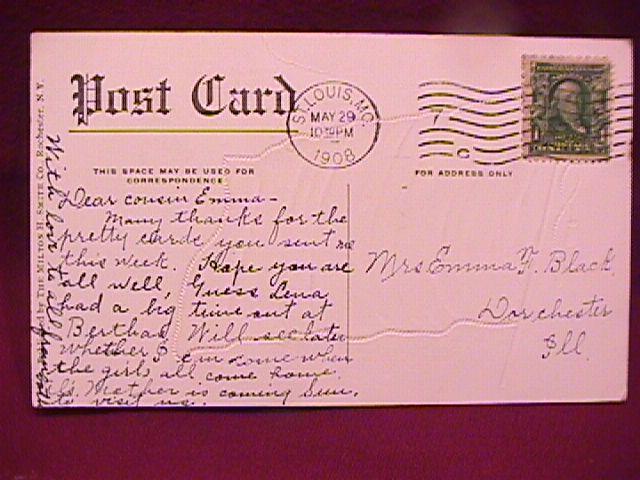 Post Card
ST. LOUIS, MO.
MAY 29
10 PM
1908
THIS SPACE MAY BE USED FOR
CORRESPONDENCE
FOR ADDRESS ONLY
by THE MILTON H. SMITH CO., Rochester, N.Y.
Dear cousin Emma—
Many thanks for the
pretty cards you sent me
this week. Hope you are
all well, Guess Lena
had a big time out at
Berthas. Will see later
whether I can come when
the girls all come home.
Mother is coming Sun.
to visit us.
With love to all from
Mrs Emma F. Black
Dorchester
Ill.